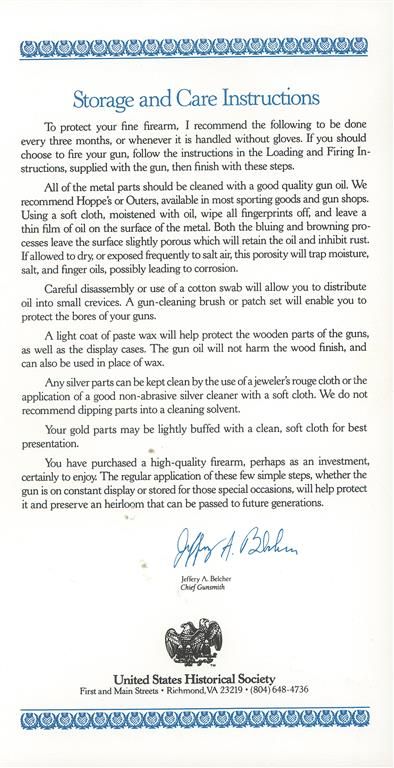 Storage and Care Instructions
To protect your fine firearm, I recommend the following to be done
every three months, or whenever it is handled without gloves. If you should
choose to fire your gun, follow the instructions in the Loading and Firing In-
structions, supplied with the gun, then finish with these steps.
All of the metal parts should be cleaned with a good quality gun oil. We
recommend Hoppe's or Outers, available in most sporting goods and gun shops.
Using a soft cloth, moistened with oil, wipe all fingerprints off, and leave a
thin film of oil on the surface of the metal. Both the bluing and browning pro-
cesses leave the surface slightly porous which will retain the oil and inhibit rust.
If allowed to dry, or exposed frequently to salt air, this porosity will trap moisture,
salt, and finger oils, possibly leading to corrosion.
Careful disassembly or use of a cotton swab will allow you to distribute
oil into small crevices. A gun-cleaning brush or patch set will enable you to
protect the bores of your guns.
A light coat of paste wax will help protect the wooden parts of the guns,
as well as the display cases. The gun oil will not harm the wood finish, and
can also be used in place of wax.
Any silver parts can be kept clean by the use of a jeweler's rouge cloth or the
application of a good non-abrasive silver cleaner with a soft cloth. We do not
recommend dipping parts into a cleaning solvent.
Your gold parts may be lightly buffed with a clean, soft cloth for best
presentation.
You have purchased a high-quality firearm, perhaps as an investment,
certainly to enjoy. The regular application of these few simple steps, whether the
gun is on constant display or stored for those special occasions, will help protect
it and preserve an heirloom that can be passed to future generations.
Jeffery A. Belcher
Jeffery A. Belcher
Chief Gunsmith
TM
United States Historical Society
First and Main Streets • Richmond, VA 23219 • (804) 648-4736